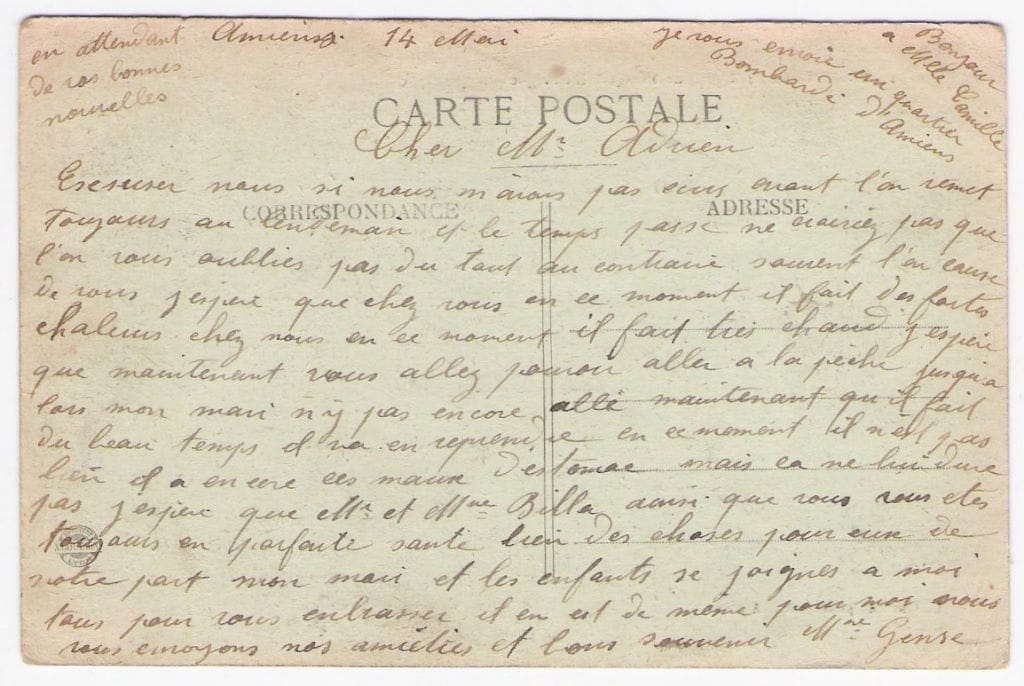 en attendant
de vos bonnes
nouvelles
Amiens 14 Mai
je vous envoie un quartier
Bombardé d'Amiens
Bonjour
a Melle Camille
CARTE POSTALE
Cher Mr Adrien
CORRESPONDANCE
ADRESSE
Escuser nous si nous m'avons pas avant l'on remet
toujours au lendeman et le temps passe ne croiriez pas que
l'on vous oublies pas du tout au contraire souvent l'on cause
de vous j'espere que chez vous en ce moment il fait des fortes
chaleurs chez nous en ce moment il fait tres chaud j espere
que maintenant vous allez pouvoir aller a la pêche jusqu'a
lors mon mari n'y pas encore allé maintenant qu'il fait
du beau temps il va en reprendre en ce moment il n'est pas
bien il a encore ces maux d'estomac mais ca ne lui dure
pas j espere que Mr et Mme Billa ainsi que vous vous etes
toujours en parfaite sante bien des choses pour eux de
notre part mon mari et les enfants se joignes a moi
tous pour vous enbrasser il en est de même pour moi nous
vous envoyons nos amitiés et bons souvenir Mme Gense
LYON